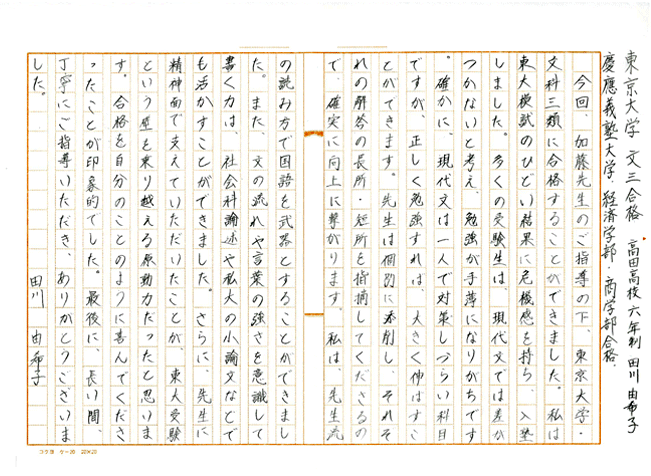 東京大学 文三合格 高田高校六年制 田川由希子
慶應義塾大学 経済学部・商学部合格
今回、加藤先生のご指導の下、東京大学・
文科三類に合格することができました。私は
東大模試のひどい結果に危機感を持ち、入塾
しました。多くの受験生は、現代文では差が
つかないと考え、勉強が手薄になりがちです
。確かに、現代文は一人で対策しづらい科目
ですが、正しく勉強すれば、大きく伸ばすこ
とができます。先生は個別に添削し、それぞ
れの解答の長所・短所を指摘してくださるの
で、確実に向上に繋がります。私は、先生流
の読み方で国語を武器とすることができまし
た。また、文の流れや言葉の強さを意識して
書く力は、社会科論述や私大の小論文などで
も活かすことができました。さらに、先生に
精神面で支えていただいたことが、東大受験
という壁を乗り越える原動力だったと思いま
す。合格を自分のことのように喜んでくださ
ったことが印象的でした。最後に、長い間、
丁寧にご指導いただき、ありがとうございま
した。
田川 由希子
コクヨ ケ-20 20×20